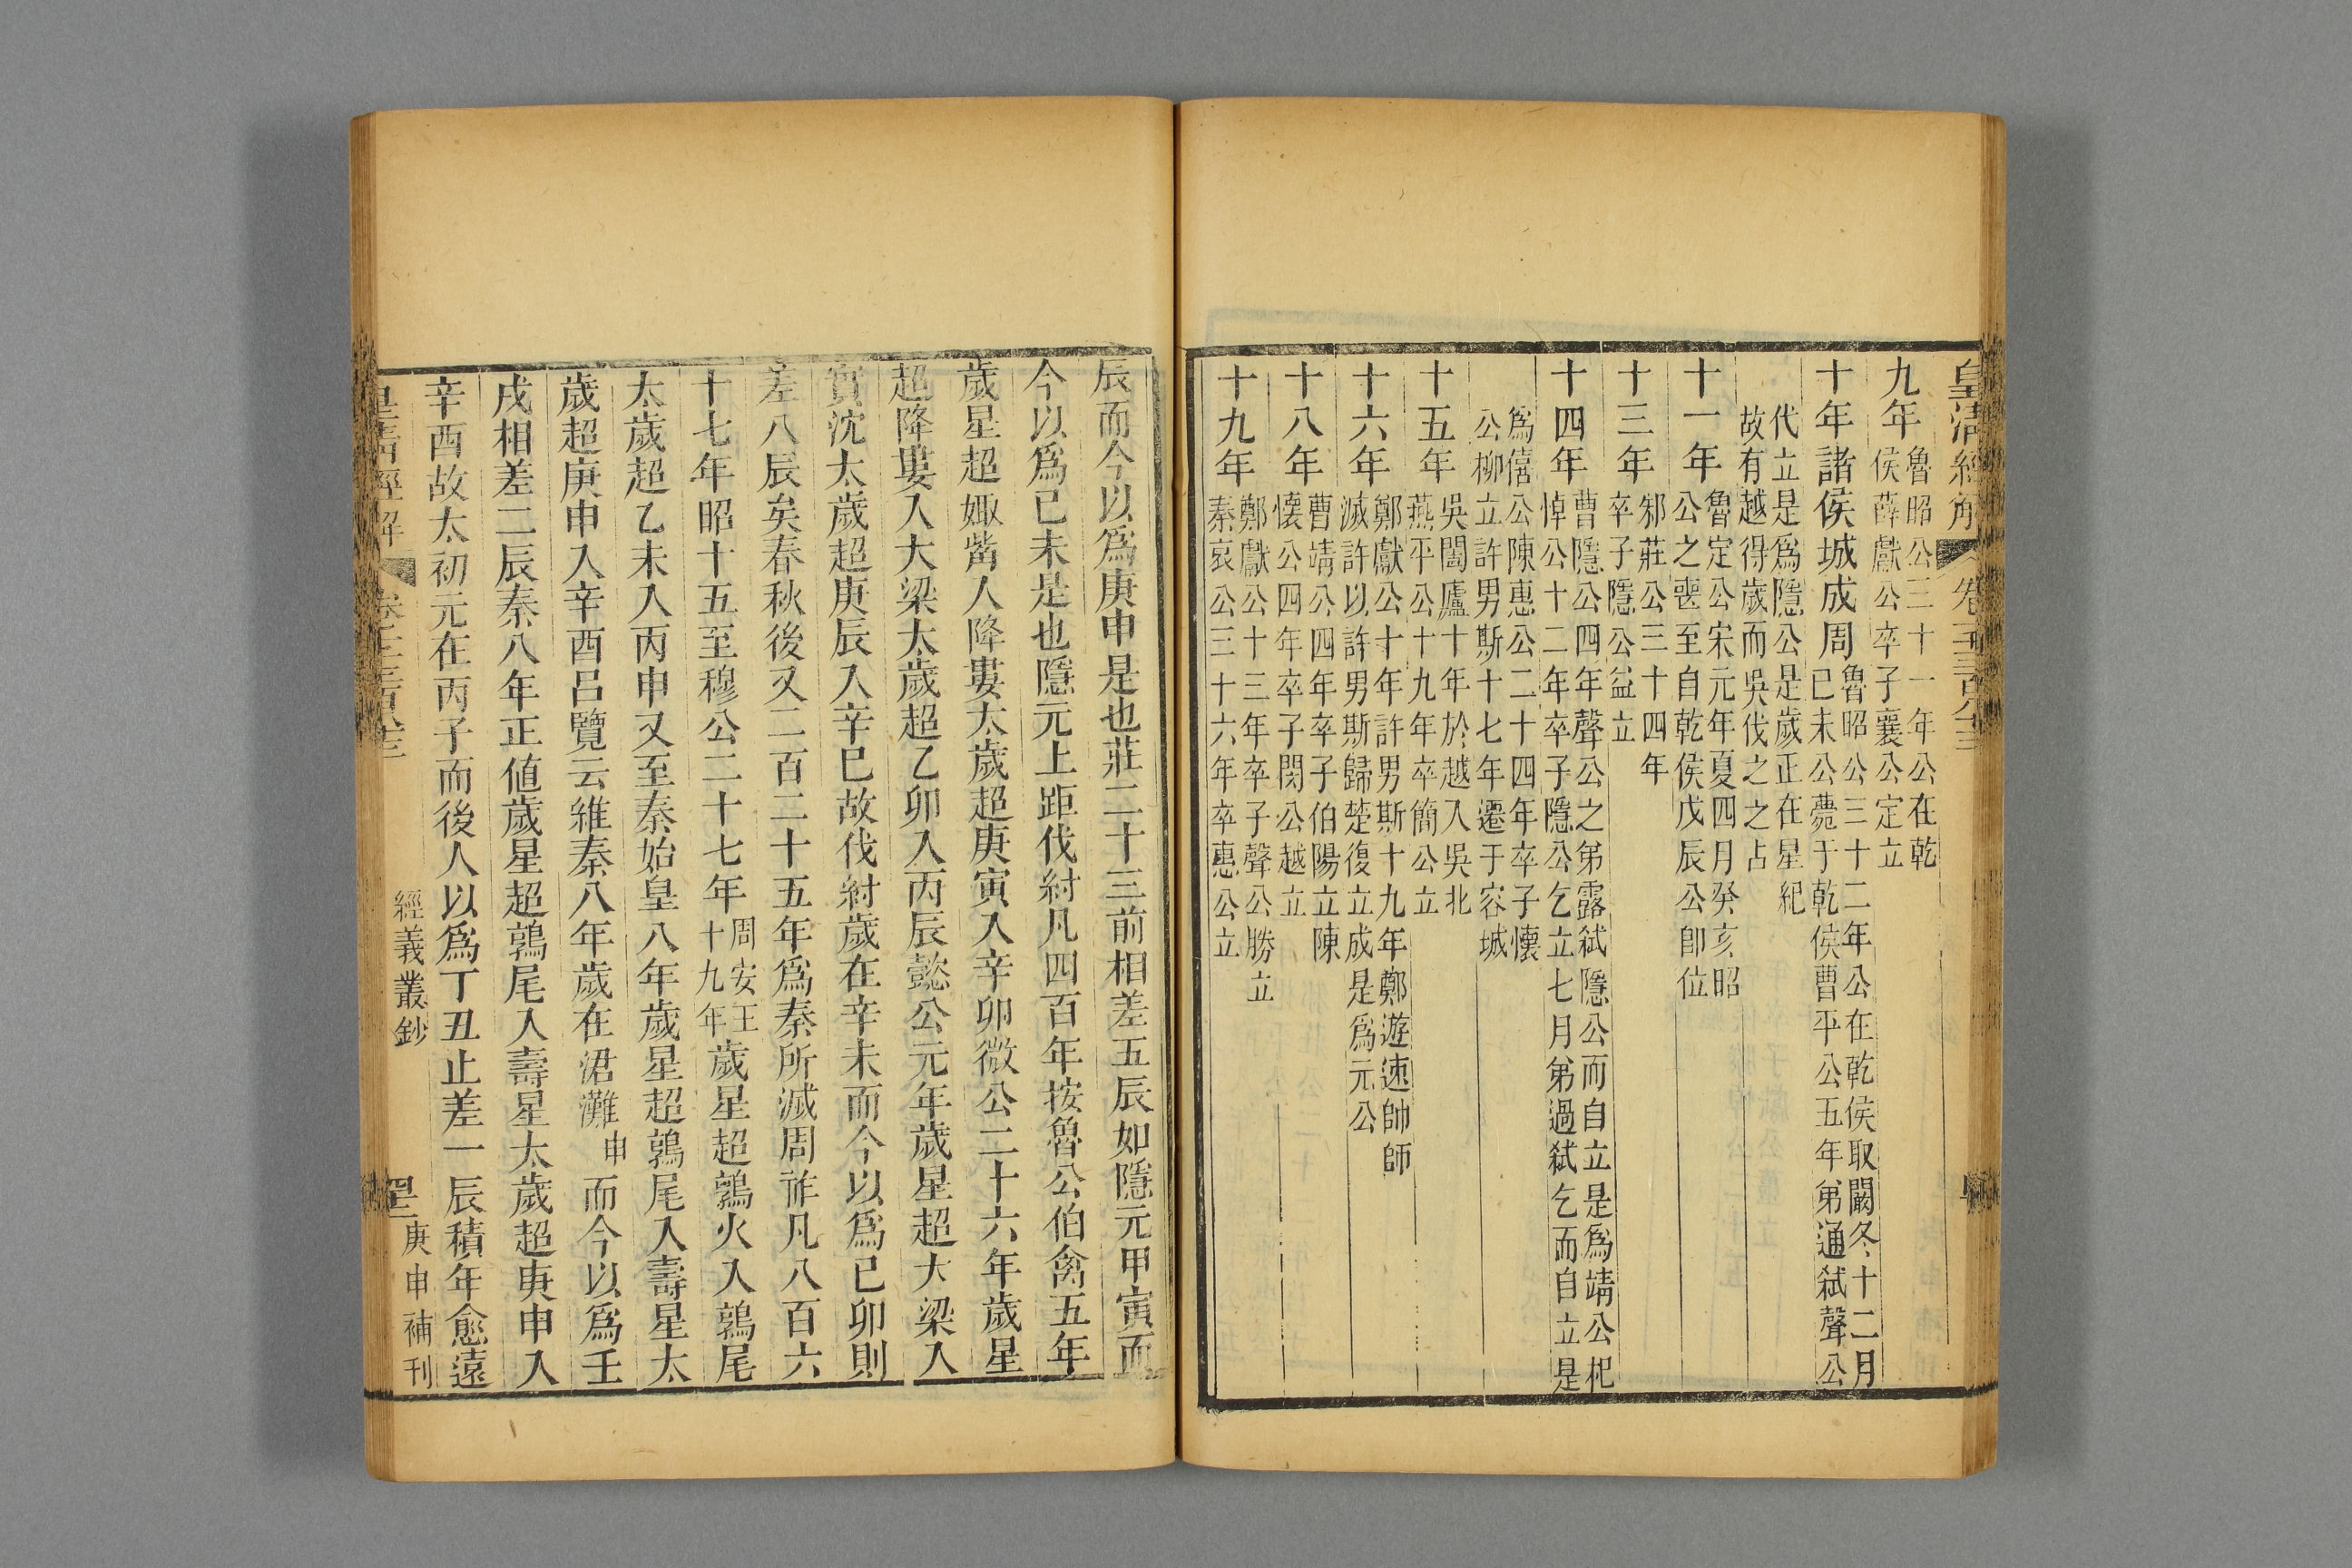 皇清經解
九年
魯昭公三十一年公在乾
侯薛獻公卒子襄公定立
十年諸侯城成周
魯昭公三十二年公在乾侯取闞冬十二月
已未公薨于乾侯曹平公五年弟通弒聲公
代立是爲隱公是歲正在星紀
故有越得歲而吳伐之之占
十一年
魯定公宋元年夏四月癸亥昭
公之喪至自乾侯戊辰公卽位
十三年
邾莊公三十四年
卒子隱公益立
十四年
曹隱公四年聲公之弟露弒隱公而自立是爲靖公杞
悼公十二年卒子隱公乞立七月弟過弒乞而自立是
爲僖公陳惠公二十四年卒子懷
公柳立許男斯十七年遷于容城
十五年
吳闔廬十年於越入吳北
燕平公十九年卒簡公立
十六年
鄭獻公十年許男斯十九年鄭遊速帥師
滅許以許男斯歸楚復立成是爲元公
十八年
曹靖公四年卒子伯陽立陳
懷公四年卒子閔公越立
十九年
鄭獻公十三年卒子聲公勝立
秦哀公三十六年卒惠公立
辰而今以爲庚申是也莊二十三前相差五辰如隱元甲寅而
今以爲已未是也隱元上距伐紂凡四百年按魯公伯禽五年
歲星超娵訾入降婁太歲超庚寅入辛卯微公二十六年歲星
超降婁入大梁太歲超乙卯入丙辰懿公元年歲星超大梁入
實沈太歲超庚辰入辛巳故伐紂歲在辛未而今以爲已卯則
差八辰矣春秋後又二百二十五年爲秦所滅周祚凡八百六
十七年昭十五至穆公二十七年周安王十九年歲星超鶉火入鶉尾
太歲超乙未入丙申又至秦始皇八年歲星超鶉尾入壽星太
歲超庚申入辛酉呂覽云維秦八年歲在涒灘申而今以爲壬
戌相差二辰秦八年正值歲星超鶉尾入壽星太歲超庚申入
辛酉故太初元在丙子而後人以爲丁丑止差一辰積年愈遠
皇清經解
經義叢鈔
庚申補刊